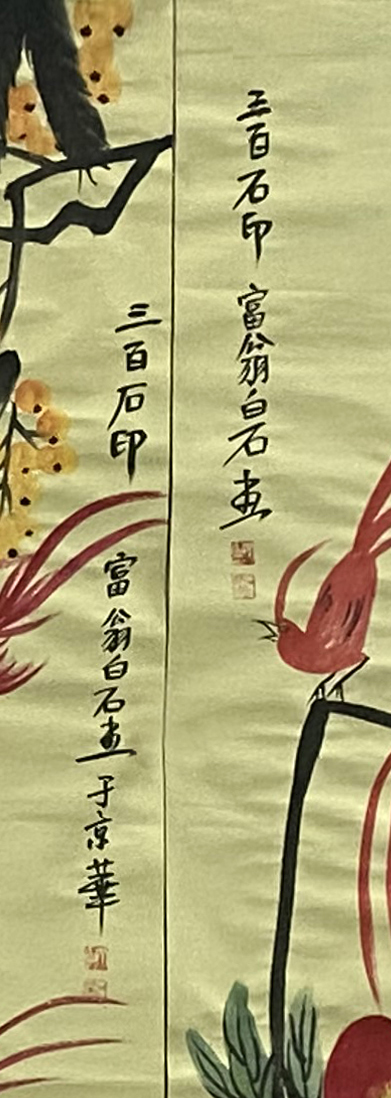 三百石印 富翁白石画
三百石印 富翁白石画于京華